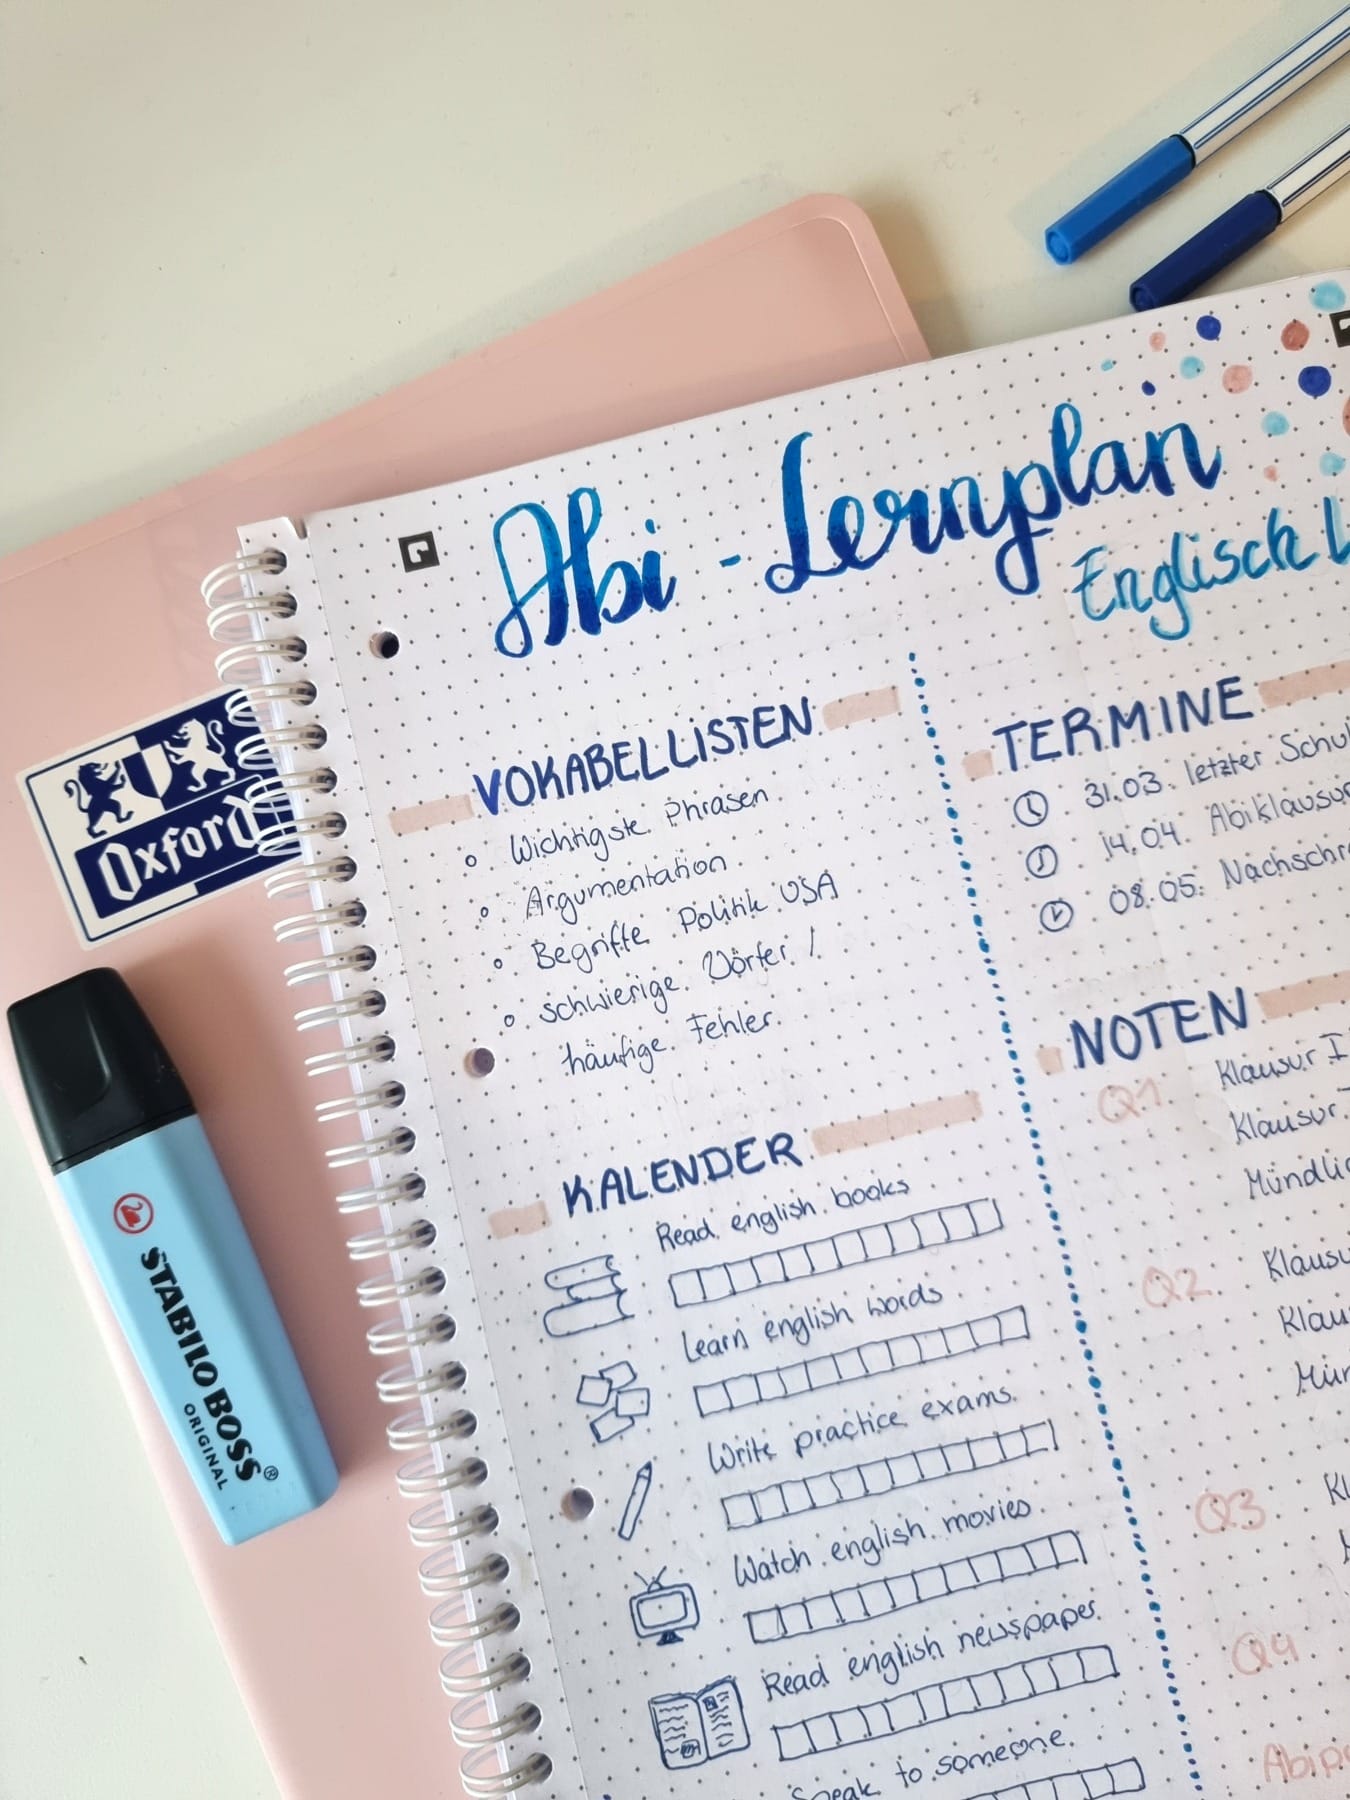 Abi - Lernplan
Englisch L
VOKABELLISTEN
Wichtigste Phrasen
Argumentation
Begriffe Politik USA
schwierige Wörter /
häufige Fehler
KALENDER
Read english books
Learn english words
Write practice exams
Watch english movies
Read english newspaper
Speak to someone
TERMINE
31.03. letzter Schul
14.04. Abiklausur
08.05. Nachschr
NOTEN
Q1
Klausur I
Klausur
Mündlic
Q2
Klausu
Klau
Mün
Q3
Kl
Q4
Abip
Oxford
STABILO BOSS®
ORIGINAL